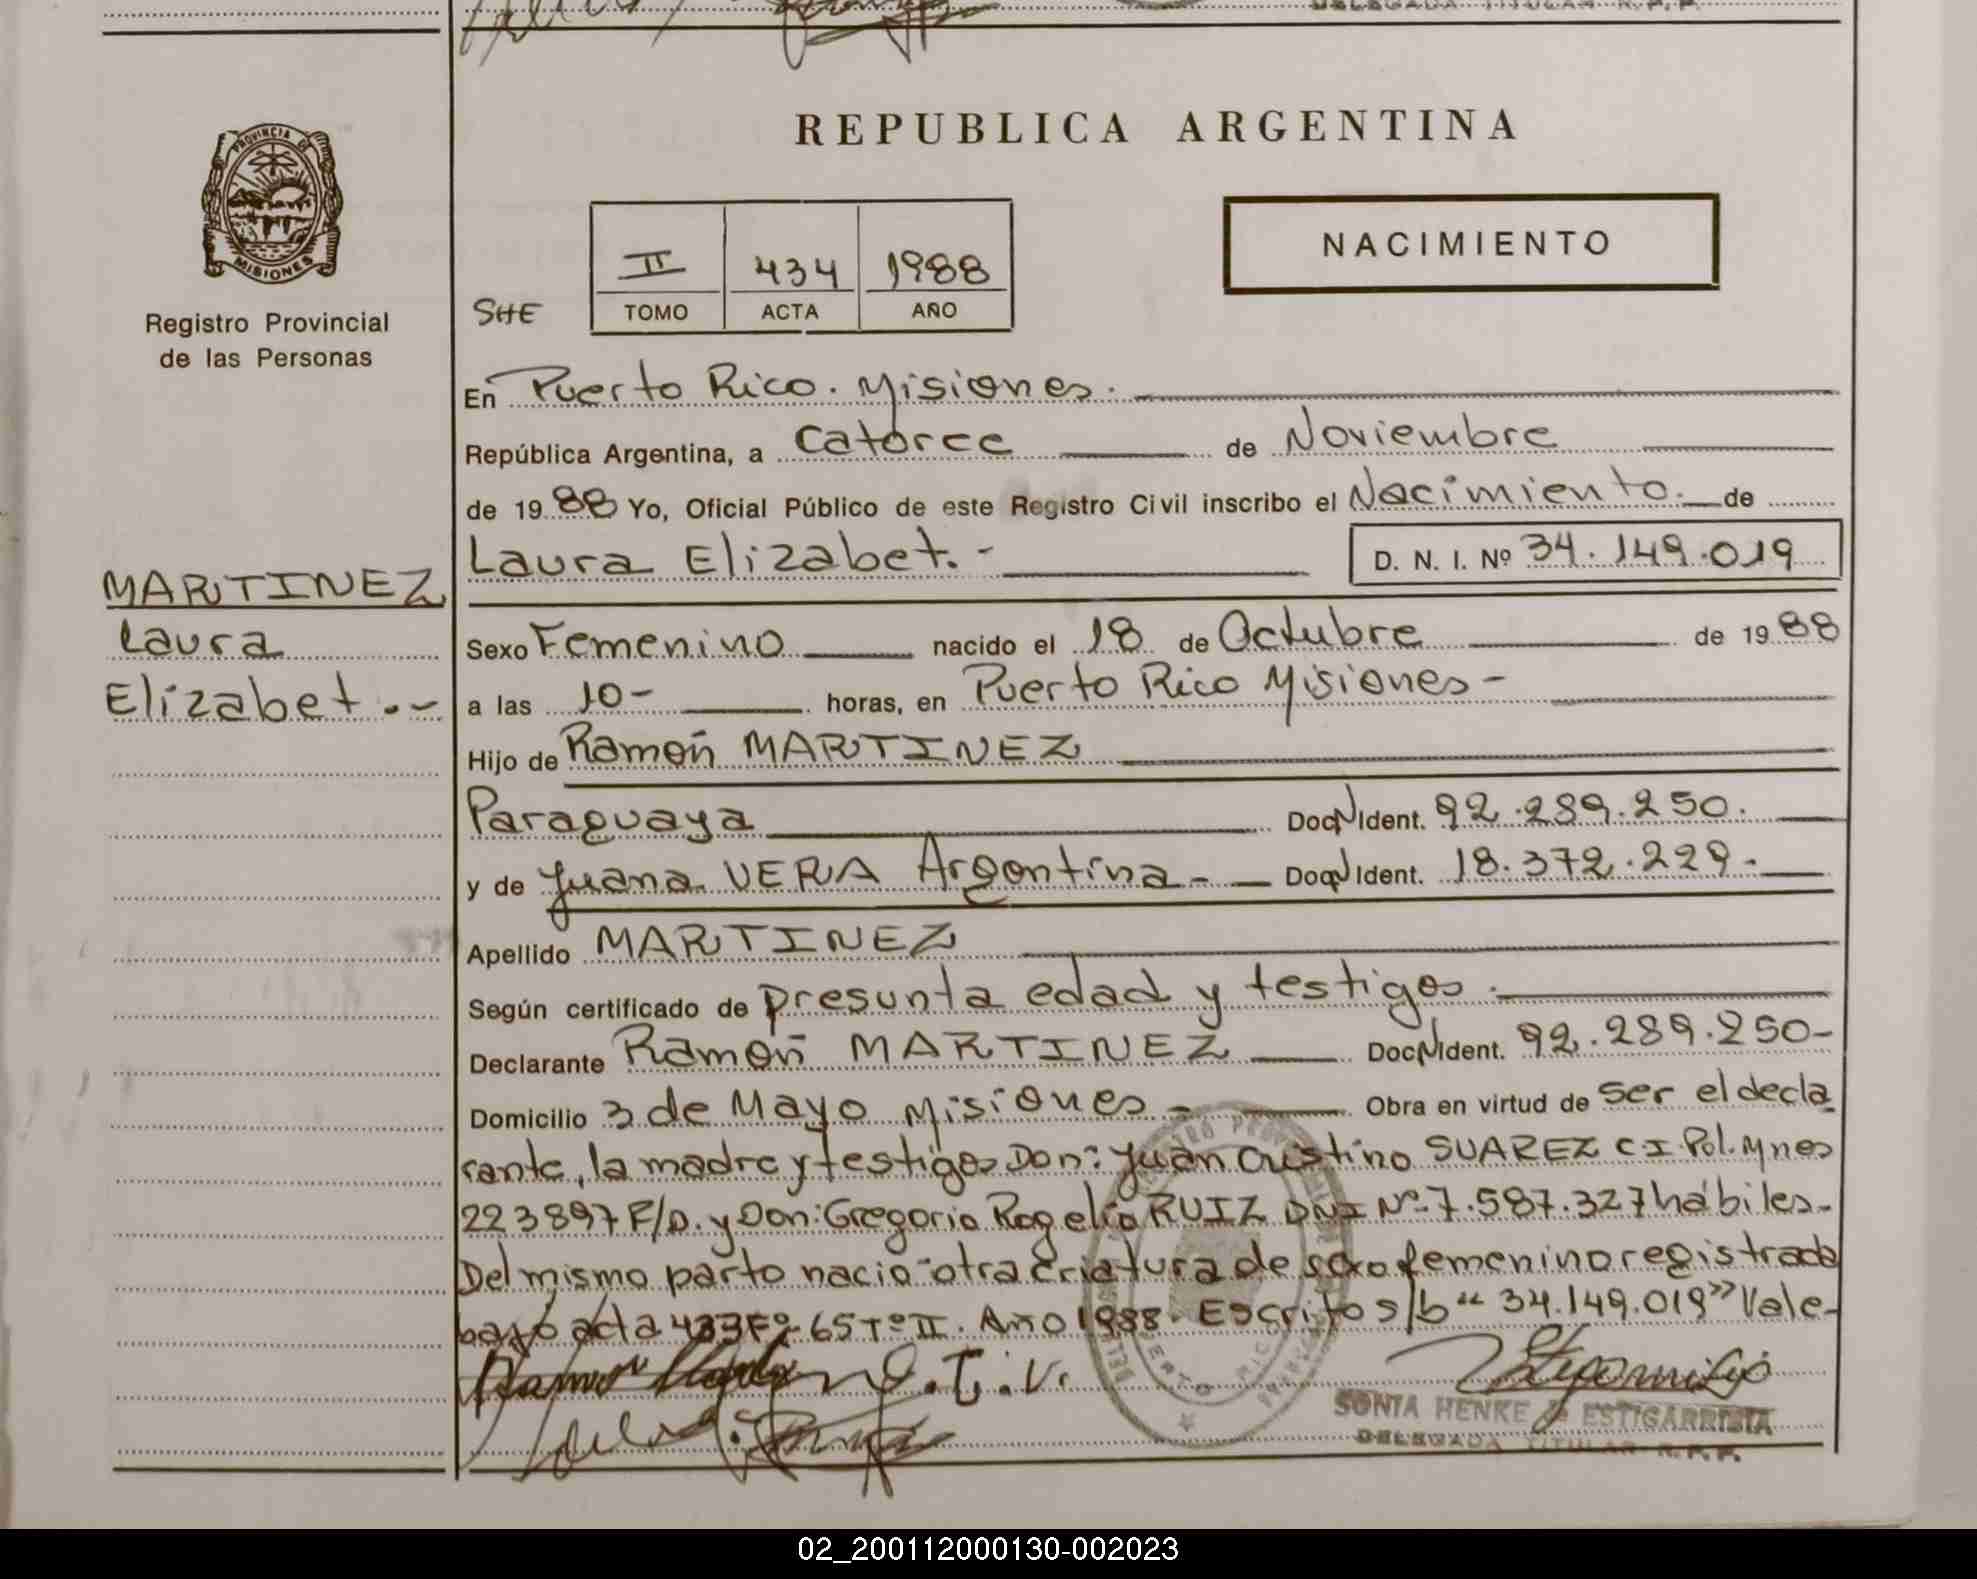 DELEGADA TITULAR R.P.P.
REPUBLICA ARGENTINA
PROVINCIA DE
MISIONES
Registro Provincial
de las Personas
SHE
II 434 1988
TOMO ACTA AÑO
NACIMIENTO
En Puerto Rico. Misiones.
República Argentina, a catorce de Noviembre
de 1988 Yo, Oficial Público de este Registro Civil inscribo el Nacimiento. de
Laura Elizabet.- D. N. I. Nº 34.149.019
MARTINEZ
Laura
Elizabet.-
Sexo Femenino nacido el 18 de Octubre de 1988
a las 10- horas, en Puerto Rico Misiones-
Hijo de Ramón MARTINEZ
Paraguaya Doc N Ident. 92.289.250.
y de Juana VERA Argentina- Doc N Ident. 18.372.229.
Apellido MARTINEZ
Según certificado de presunta edad y testigos.
Declarante Ramón MARTINEZ Doc N Ident. 92.289.250-
Domicilio 3 de Mayo Misiones- Obra en virtud de ser el decla
rante, la madre y testigos Don: Juan Cristino SUAREZ C I. Pol. Mnes
223897 F/D. y Don: Gregorio Rogelio RUIZ DNI Nº 7.587.327 hábiles-
Del mismo parto nació otra criatura de sexo femenino registrada
bajo acta 433 Fº 65 Tº II. Año 1988. Escrito s/b "34.149.019" Vale-
J.V.
SONIA HENKE DE ESTIGARRIBIA
DELEGADA TITULAR R.P.P.
02_200112000130-002023